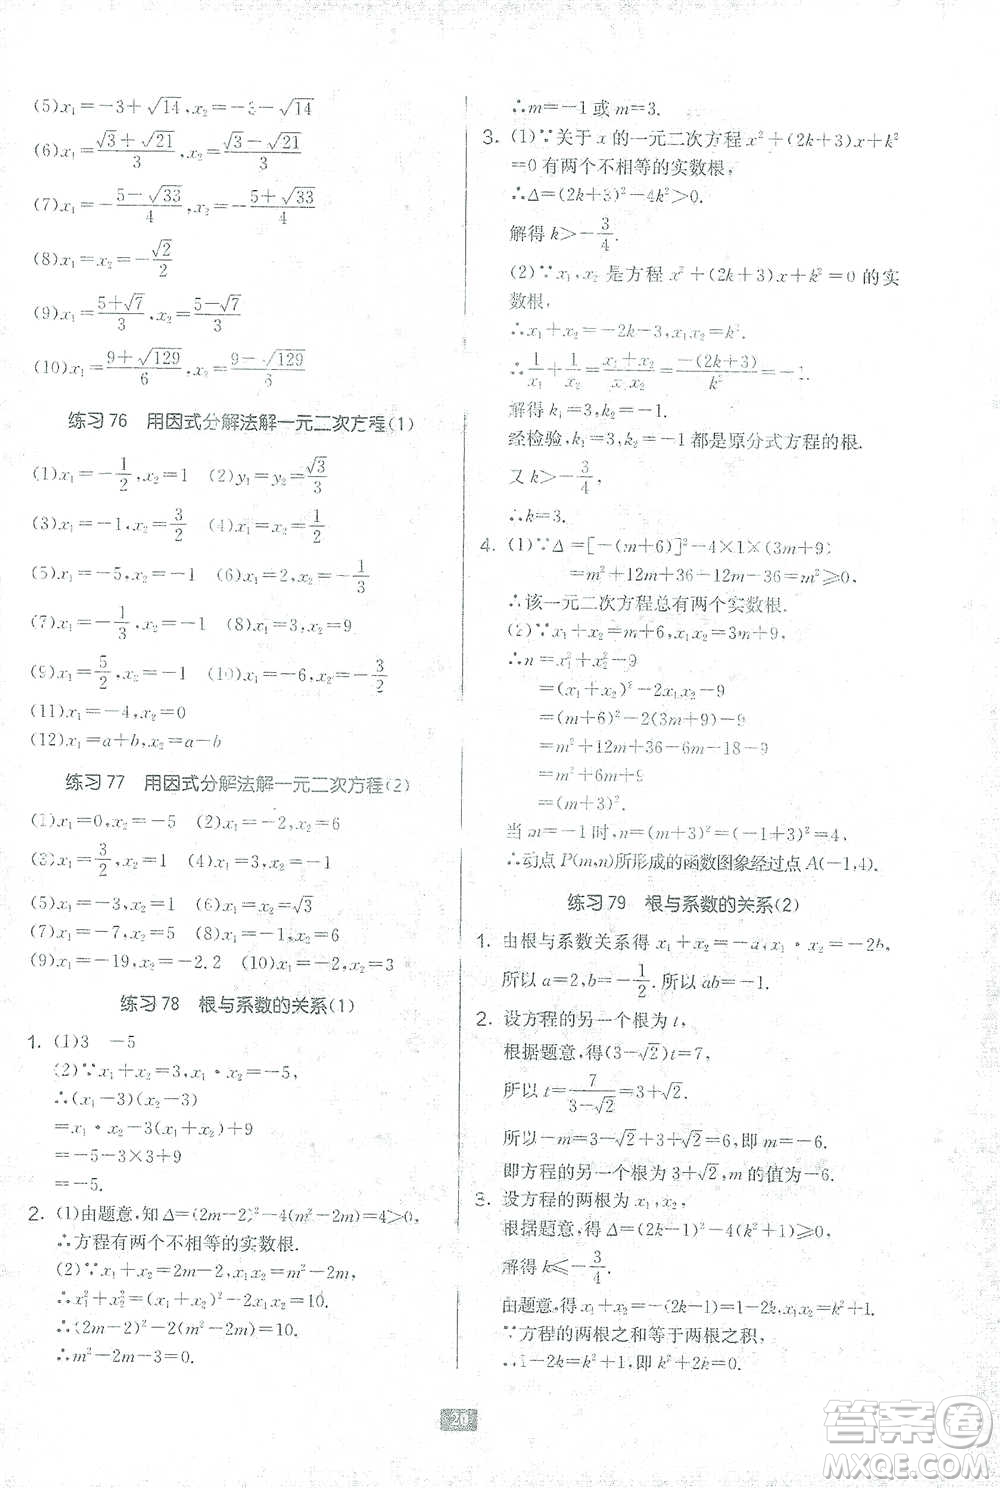 (5)x₁=-3+√14,x₂=-3-√14
(6)x₁=(√3+√21)/3,x₂=(√3-√21)/3
(7)x₁=-(5-√33)/4,x₂=-(5+√33)/4
(8)x₁=x₂=-√2/2
(9)x₁=(5+√7)/3,x₂=(5-√7)/3
(10)x₁=(9+√129)/6,x₂=(9-√129)/6
练习 76 用因式分解法解一元二次方程(1)
(1)x₁=-1/2,x₂=1 (2)y₁=y₂=√3/3
(3)x₁=-1,x₂=3/2 (4)x₁=x₂=1/2
(5)x₁=-5,x₂=1 (6)x₁=2,x₂=-1/3
(7)x₁=-1/3,x₂=-1 (8)x₁=3,x₂=9
(9)x₁=5/2,x₂=1 (10)x₁=-6,x₂=-3/2
(11)x₁=-4,x₂=0
(12)x₁=a+b,x₂=a-b
练习 77 用因式分解法解一元二次方程(2)
(1)x₁=0,x₂=-5 (2)x₁=-2,x₂=6
(3)x₁=3/2,x₂=1 (4)x₁=3,x₂=-1
(5)x₁=-3,x₂=1 (6)x₁=x₂=√3
(7)x₁=-7,x₂=5 (8)x₁=2,x₂=4
(9)x₁=-19,x₂=-2.2 (10)x₁=-2,x₂=3
练习 78 根与系数的关系(1)
1. (1)3 -5
(2)∵x₁+x₂=3,x₁·x₂=-5,
∴(x₁-3)(x₂-3)
=x₁·x₂-3(x₁+x₂)+9
=-5-3×3+9
=-5.
2. (1)由题意,知Δ=(2m-2)²-4(m²-2m)=4>0,
∴方程有两个不相等的实数根.
(2)∵x₁+x₂=2m-2,x₁x₂=m²-2m,
∴x₁²+x₂²=(x₁+x₂)²-2x₁x₂=10.
∴(2m-2)²-2(m²-2m)=10.
∴m²-2m-3=0.
∴m=-1 或 m=3.
3. (1)∵关于 x 的一元二次方程 x²+(2k+3)x+k²
=0 有两个不相等的实数根,
∴Δ=(2k+3)²-4k²>0.
解得 k>-3/4.
(2)∵x₁,x₂ 是方程 x²+(2k+3)x+k²=0 的实
数根,
∴x₁+x₂=-2k-3,x₁x₂=k².
∴1/x₁+1/x₂=(x₁+x₂)/(x₁x₂)=-(2k+3)/k²=-1.
解得 k₁=3,k₂=-1.
经检验,k₁=3,k₂=-1 都是原分式方程的根.
又 k>-3/4,
∴k=3.
4. (1)∵Δ=[-(m+6)]²-4×1×(3m+9)
=m²+12m+36-12m-36=m²≥0,
∴该一元二次方程总有两个实数根.
(2)∵x₁+x₂=m+6,x₁x₂=3m+9,
∴n=x₁²+x₂²-9
=(x₁+x₂)²-2x₁x₂-9
=(m+6)²-2(3m+9)-9
=m²+12m+36-6m-18-9
=m²+6m+9
=(m+3)².
当 m=-1 时,n=(m+3)²=(-1+3)²=4,
∴动点 P(m,n)所形成的函数图象经过点 A(-1,4).
练习 79 根与系数的关系(2)
1. 由根与系数关系得 x₁+x₂=-a,x₁·x₂=-2b,
所以 a=2,b=-1/2. 所以 ab=-1.
2. 设方程的另一个根为 t,
根据题意,得(3-√2)t=7,
所以 t=7/(3-√2)=3+√2.
所以-m=3-√2+3+√2=6,即 m=-6.
即方程的另一个根为 3+√2,m 的值为-6.
3. 设方程的两根为 x₁,x₂,
根据题意,得 Δ=(2k-1)²-4(k²+1)≥0,
解得 k≤-3/4.
由题意,得 x₁+x₂=-(2k-1)=1-2k,x₁x₂=k²+1.
∵方程的两根之和等于两根之积,
∴1-2k=k²+1,即 k²+2k=0.
20
答案圈
MXQE.COM